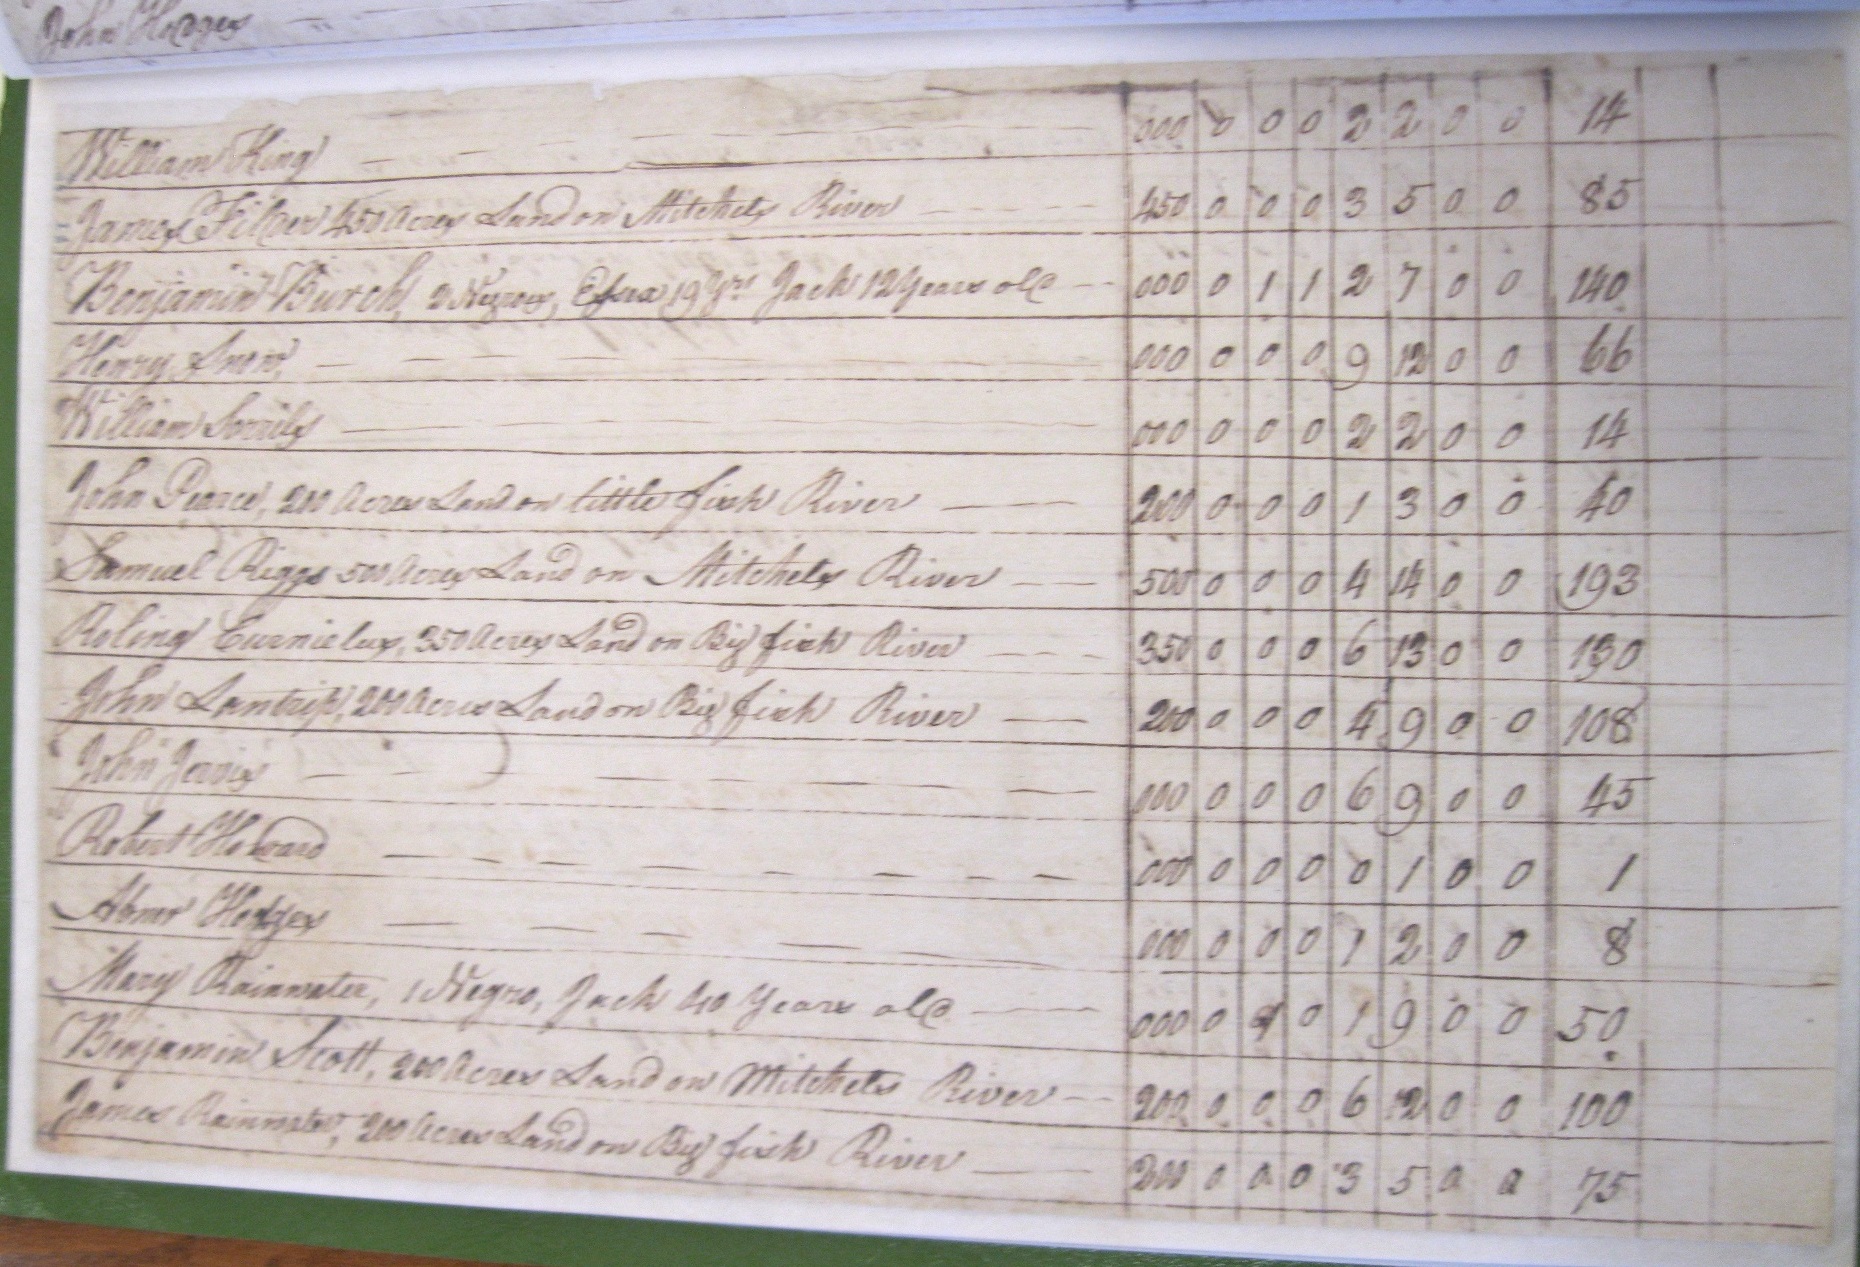 John Hodges
William King 000 0 0 0 2 2 0 0 14
James 450 Acres Land on Mitchels River 450 0 0 0 3 5 0 0 85
Benjamin Burch, 2 Negroes, 19 Yrs Jack 12 Years old 000 0 1 1 2 7 0 0 140
Henry Snow, 000 0 0 0 9 12 0 0 66
William 000 0 0 0 2 2 0 0 14
John Pearce, 200 Acres Land on little fish River 200 0 0 0 1 3 0 0 40
Samuel Riggs 500 Acres Land on Mitchels River 500 0 0 0 4 14 0 0 193
Roling 350 Acres Land on Big fish River 350 0 0 0 6 13 0 0 130
John Lantrip, 200 Acres Land on Big fish River 200 0 0 0 4 9 0 0 108
John Jervis 000 0 0 0 6 9 0 0 45
Robert Howard 000 0 0 0 0 1 0 0 1
Abner Hodges 000 0 0 0 1 2 0 0 8
Mary Rainwater, 1 Negro, Jack 40 Years old 000 0 1 0 1 9 0 0 50
Benjamin Scott, 200 Acres Land on Mitchels River 200 0 0 0 6 12 0 0 100
James Rainwater, 200 Acres Land on Big fish River 200 0 0 0 3 5 0 0 75